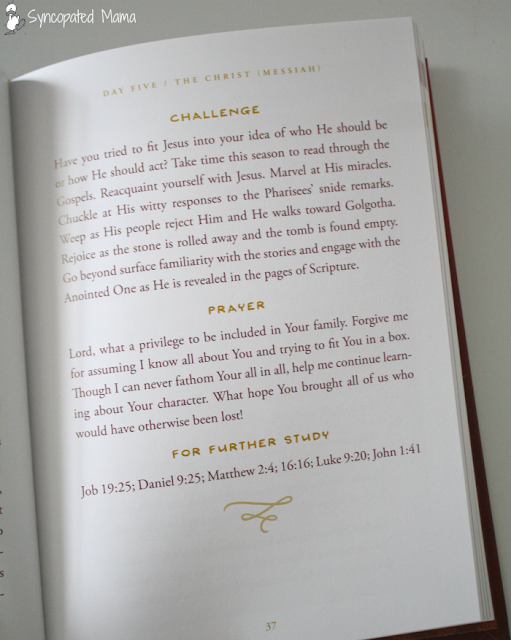 Syncopated Mama
DAY FIVE / THE CHRIST (MESSIAH)
CHALLENGE
Have you tried to fit Jesus into your idea of who He should be
or how He should act? Take time this season to read through the
Gospels. Reacquaint yourself with Jesus. Marvel at His miracles.
Chuckle at His witty responses to the Pharisees' snide remarks.
Weep as His people reject Him and He walks toward Golgotha.
Rejoice as the stone is rolled away and the tomb is found empty.
Go beyond surface familiarity with the stories and engage with the
Anointed One as He is revealed in the pages of Scripture.
PRAYER
Lord, what a privilege to be included in Your family. Forgive me
for assuming I know all about You and trying to fit You in a box.
Though I can never fathom Your all in all, help me continue learn-
ing about Your character. What hope You brought all of us who
would have otherwise been lost!
FOR FURTHER STUDY
Job 19:25; Daniel 9:25; Matthew 2:4; 16:16; Luke 9:20; John 1:41
37